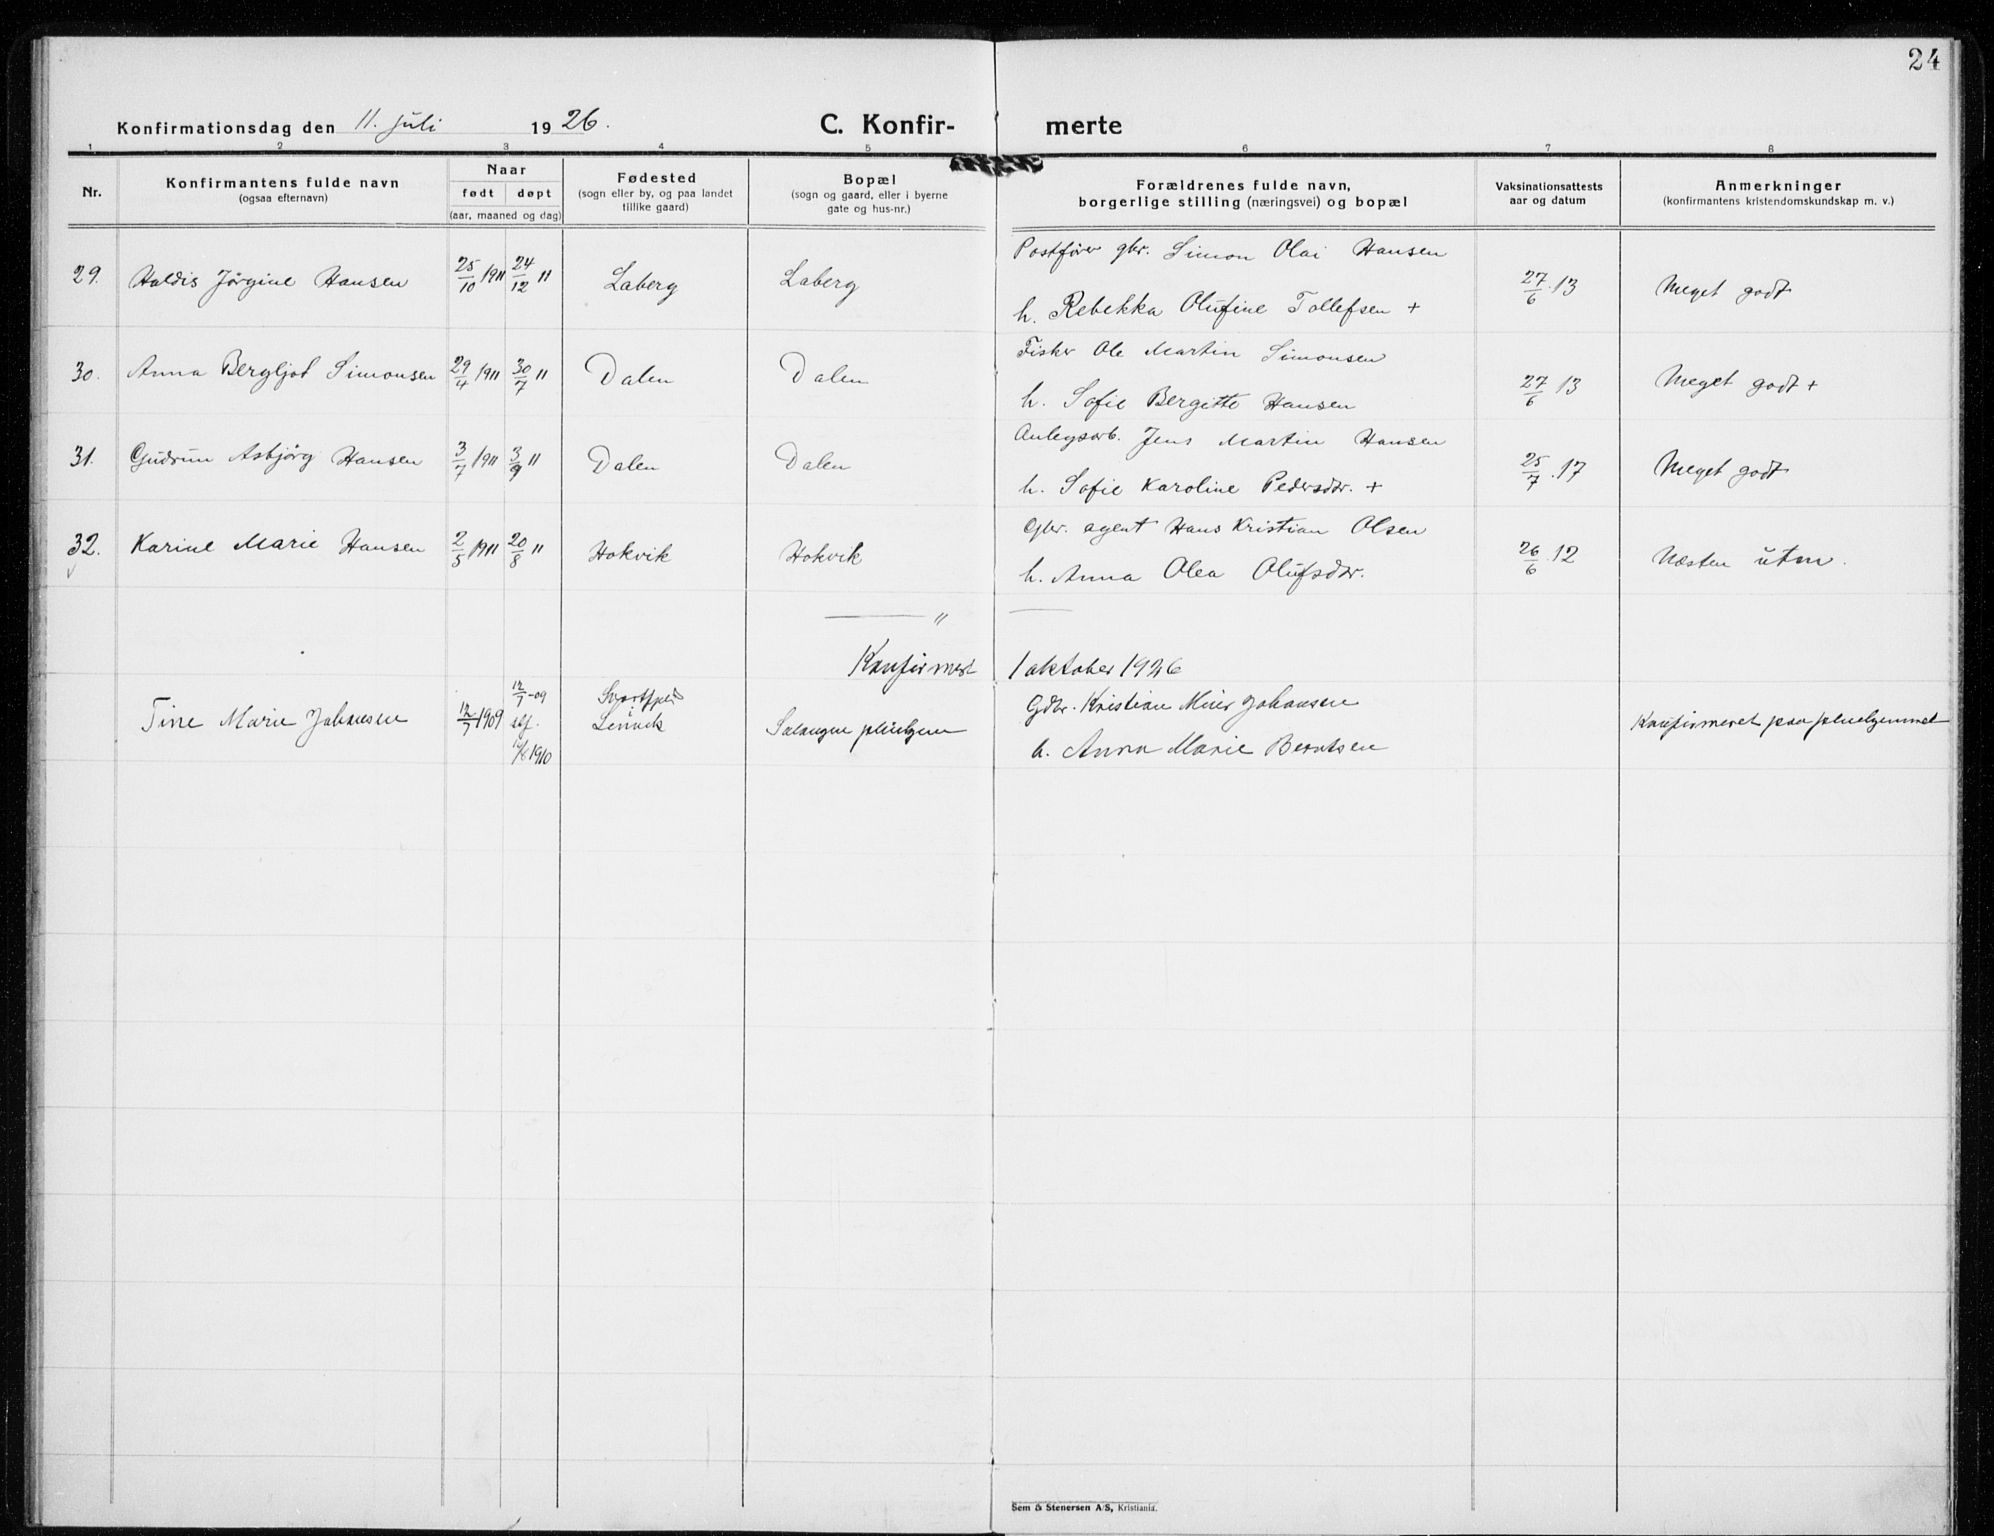 24
Konfirmationsdag den 11. juli 1926.
C. Konfir- merte
1 2 3 4 5 6 7 8
Nr.
Konfirmantens fulde navn
(ogsaa efternavn)
Naar
født døpt
(aar, maaned og dag)
Fødested
(sogn eller by, og paa landet
tillike gaard)
Bopæl
(sogn og gaard, eller i byerne
gate og hus-nr.)
Forældrenes fulde navn,
borgerlige stilling (næringsvei) og bopæl
Vaksinationsattests
aar og datum
Anmerkninger
(konfirmantens kristendomskundskap m. v.)
Postfører gbr. Simon Olai Hansen
29. Haldis Jørgine Hansen 25/10 1911 24/12 11 Laberg Laberg 27/6 .13 Meget godt
h. Rebekka Olufine Tollefsen +
Fisker Ole Martin Simonsen
30. Anna Bergljot Simonsen 29/4 1911 30/7 11 Dalen Dalen 27/6 13 Meget godt +
h. Sofie Bergitte Hansen
Anlegsarb. Jens Martin Hansen
31. Gudrun Asbjørg Hansen 3/7 1911 3/9 11 Dalen Dalen 25/7 .17 Meget godt
h. Sofie Karoline Pedersdtr. +
Gbr. agent Hans Kristian Olsen
32. Karine Marie Hansen 2/5 1911 20/8 11 Hokvik Hokvik 26/6 .12 Næsten utm.
h. Anna Olea Olufsdtr.
"
Konfirmert 1 oktober 1926
12/7 -09
Gdbr. Kristian Johansen
Tine Marie Johansen 12/7 1909 Salangen pleiehjem Konfirmeret paa pleiehjemmet
1910
h. Anna Marie Berntsen
Sem & Stenersen A/S, Kristiania.